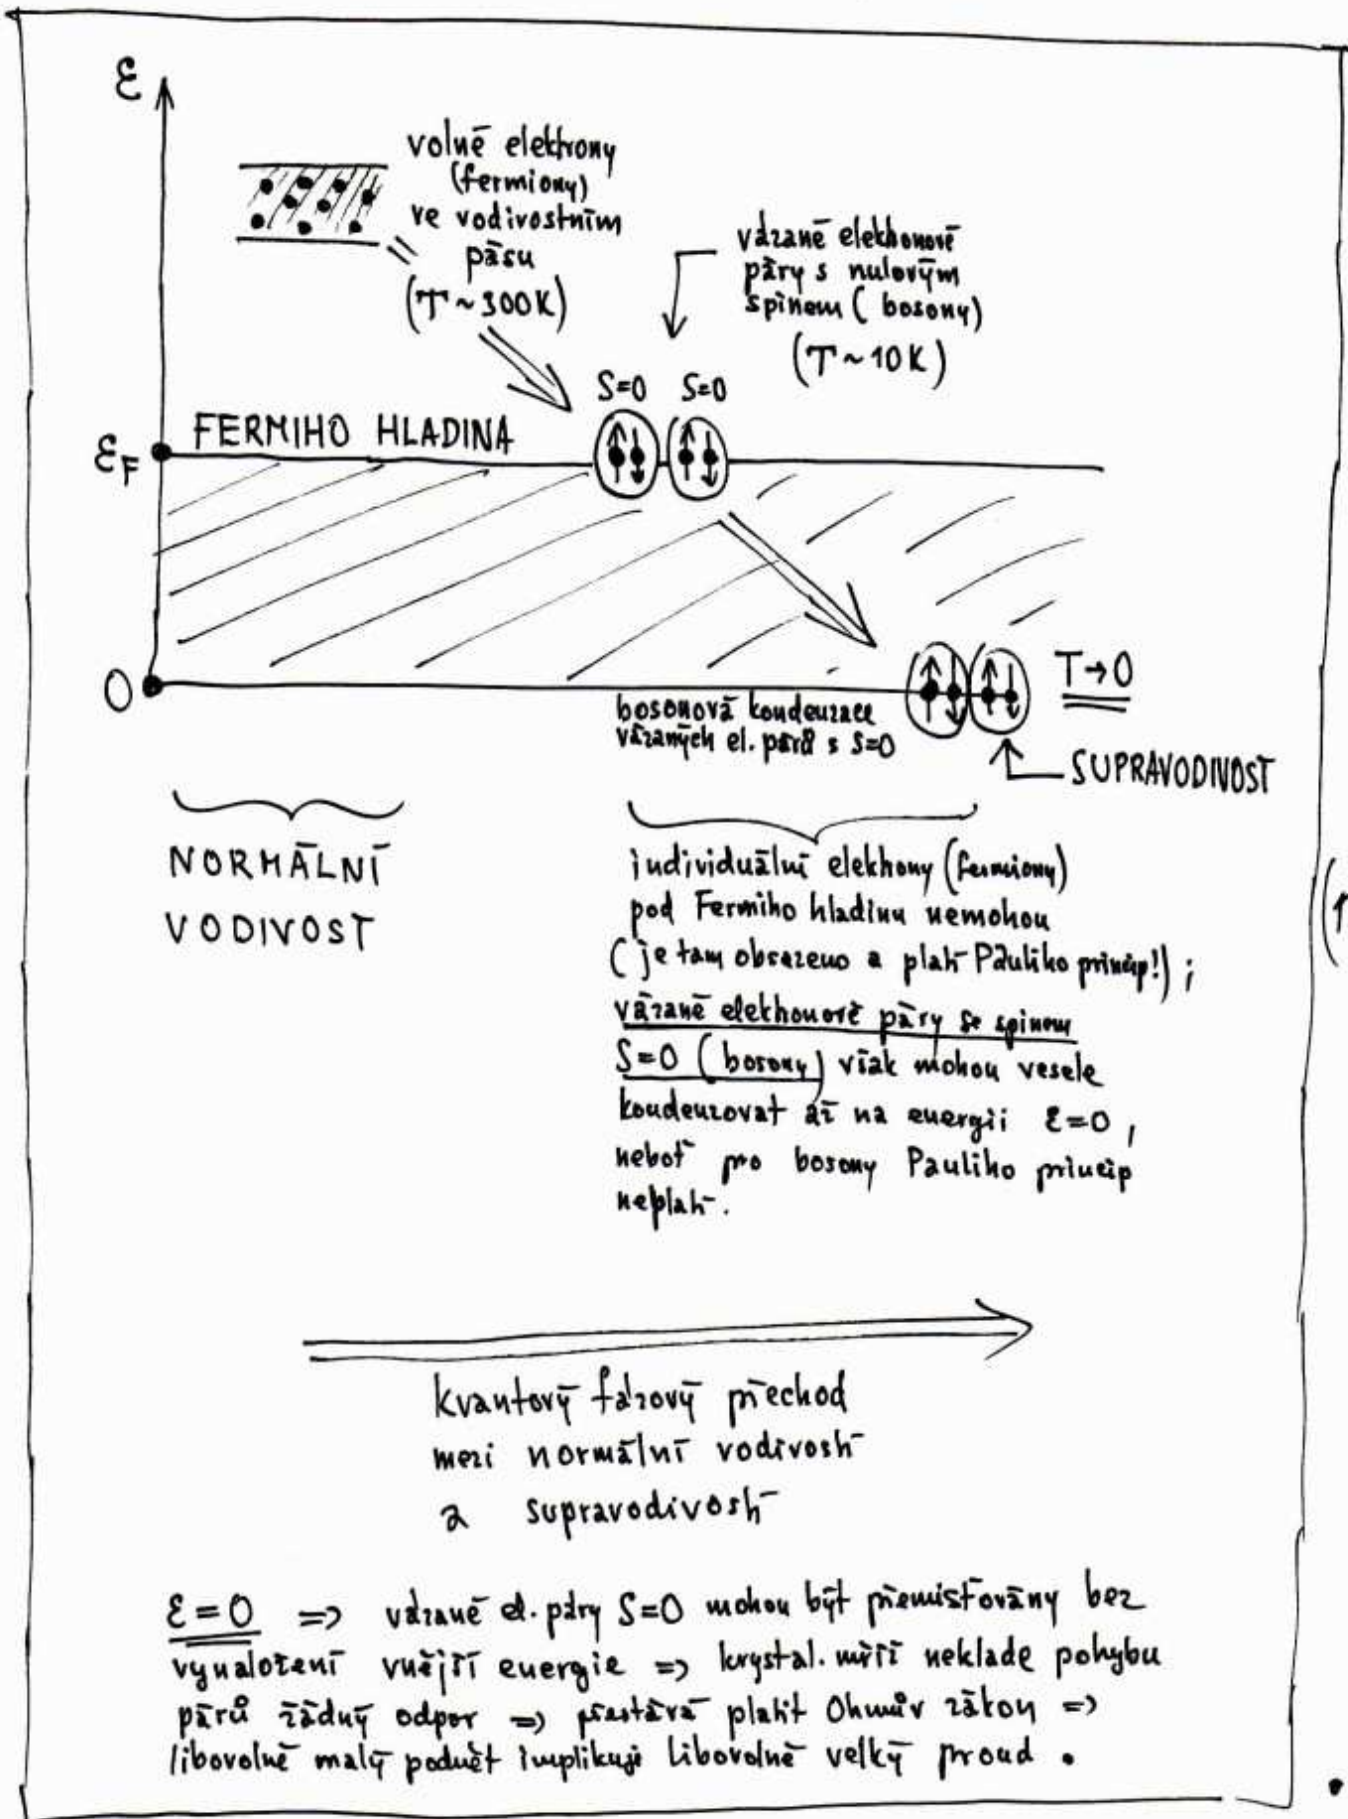 ε
volné elektrony
(fermiony)
ve vodivostním
pásu
(T ~ 300K)
vázané elektronové
páry s nulovým
spinem (bosony)
(T ~ 10K)
S=0 S=0
FERMIHO HLADINA
ε_F
0
T→0
bosonová kondenzace
vázaných el. párů s S=0
SUPRAVODIVOST
NORMÁLNÍ
VODIVOST
individuální elektrony (fermiony)
pod Fermiho hladinu nemohou
(je tam obsazeno a platí Pauliho princip!);
vázané elektronové páry se spinem
S=0 (bosony) však mohou vesele
kondenzovat až na energii ε=0,
neboť pro bosony Pauliho princip
neplatí.
kvantový fázový přechod
mezi normální vodivostí
a supravodivostí
ε=0 => vázané el. páry S=0 mohou být přemisťovány bez
vynaložení vnější energie => krystal. mříž neklade pohybu
párů žádný odpor => přestává platit Ohmův zákon =>
libovolně malý podnět implikuje libovolně velký proud.